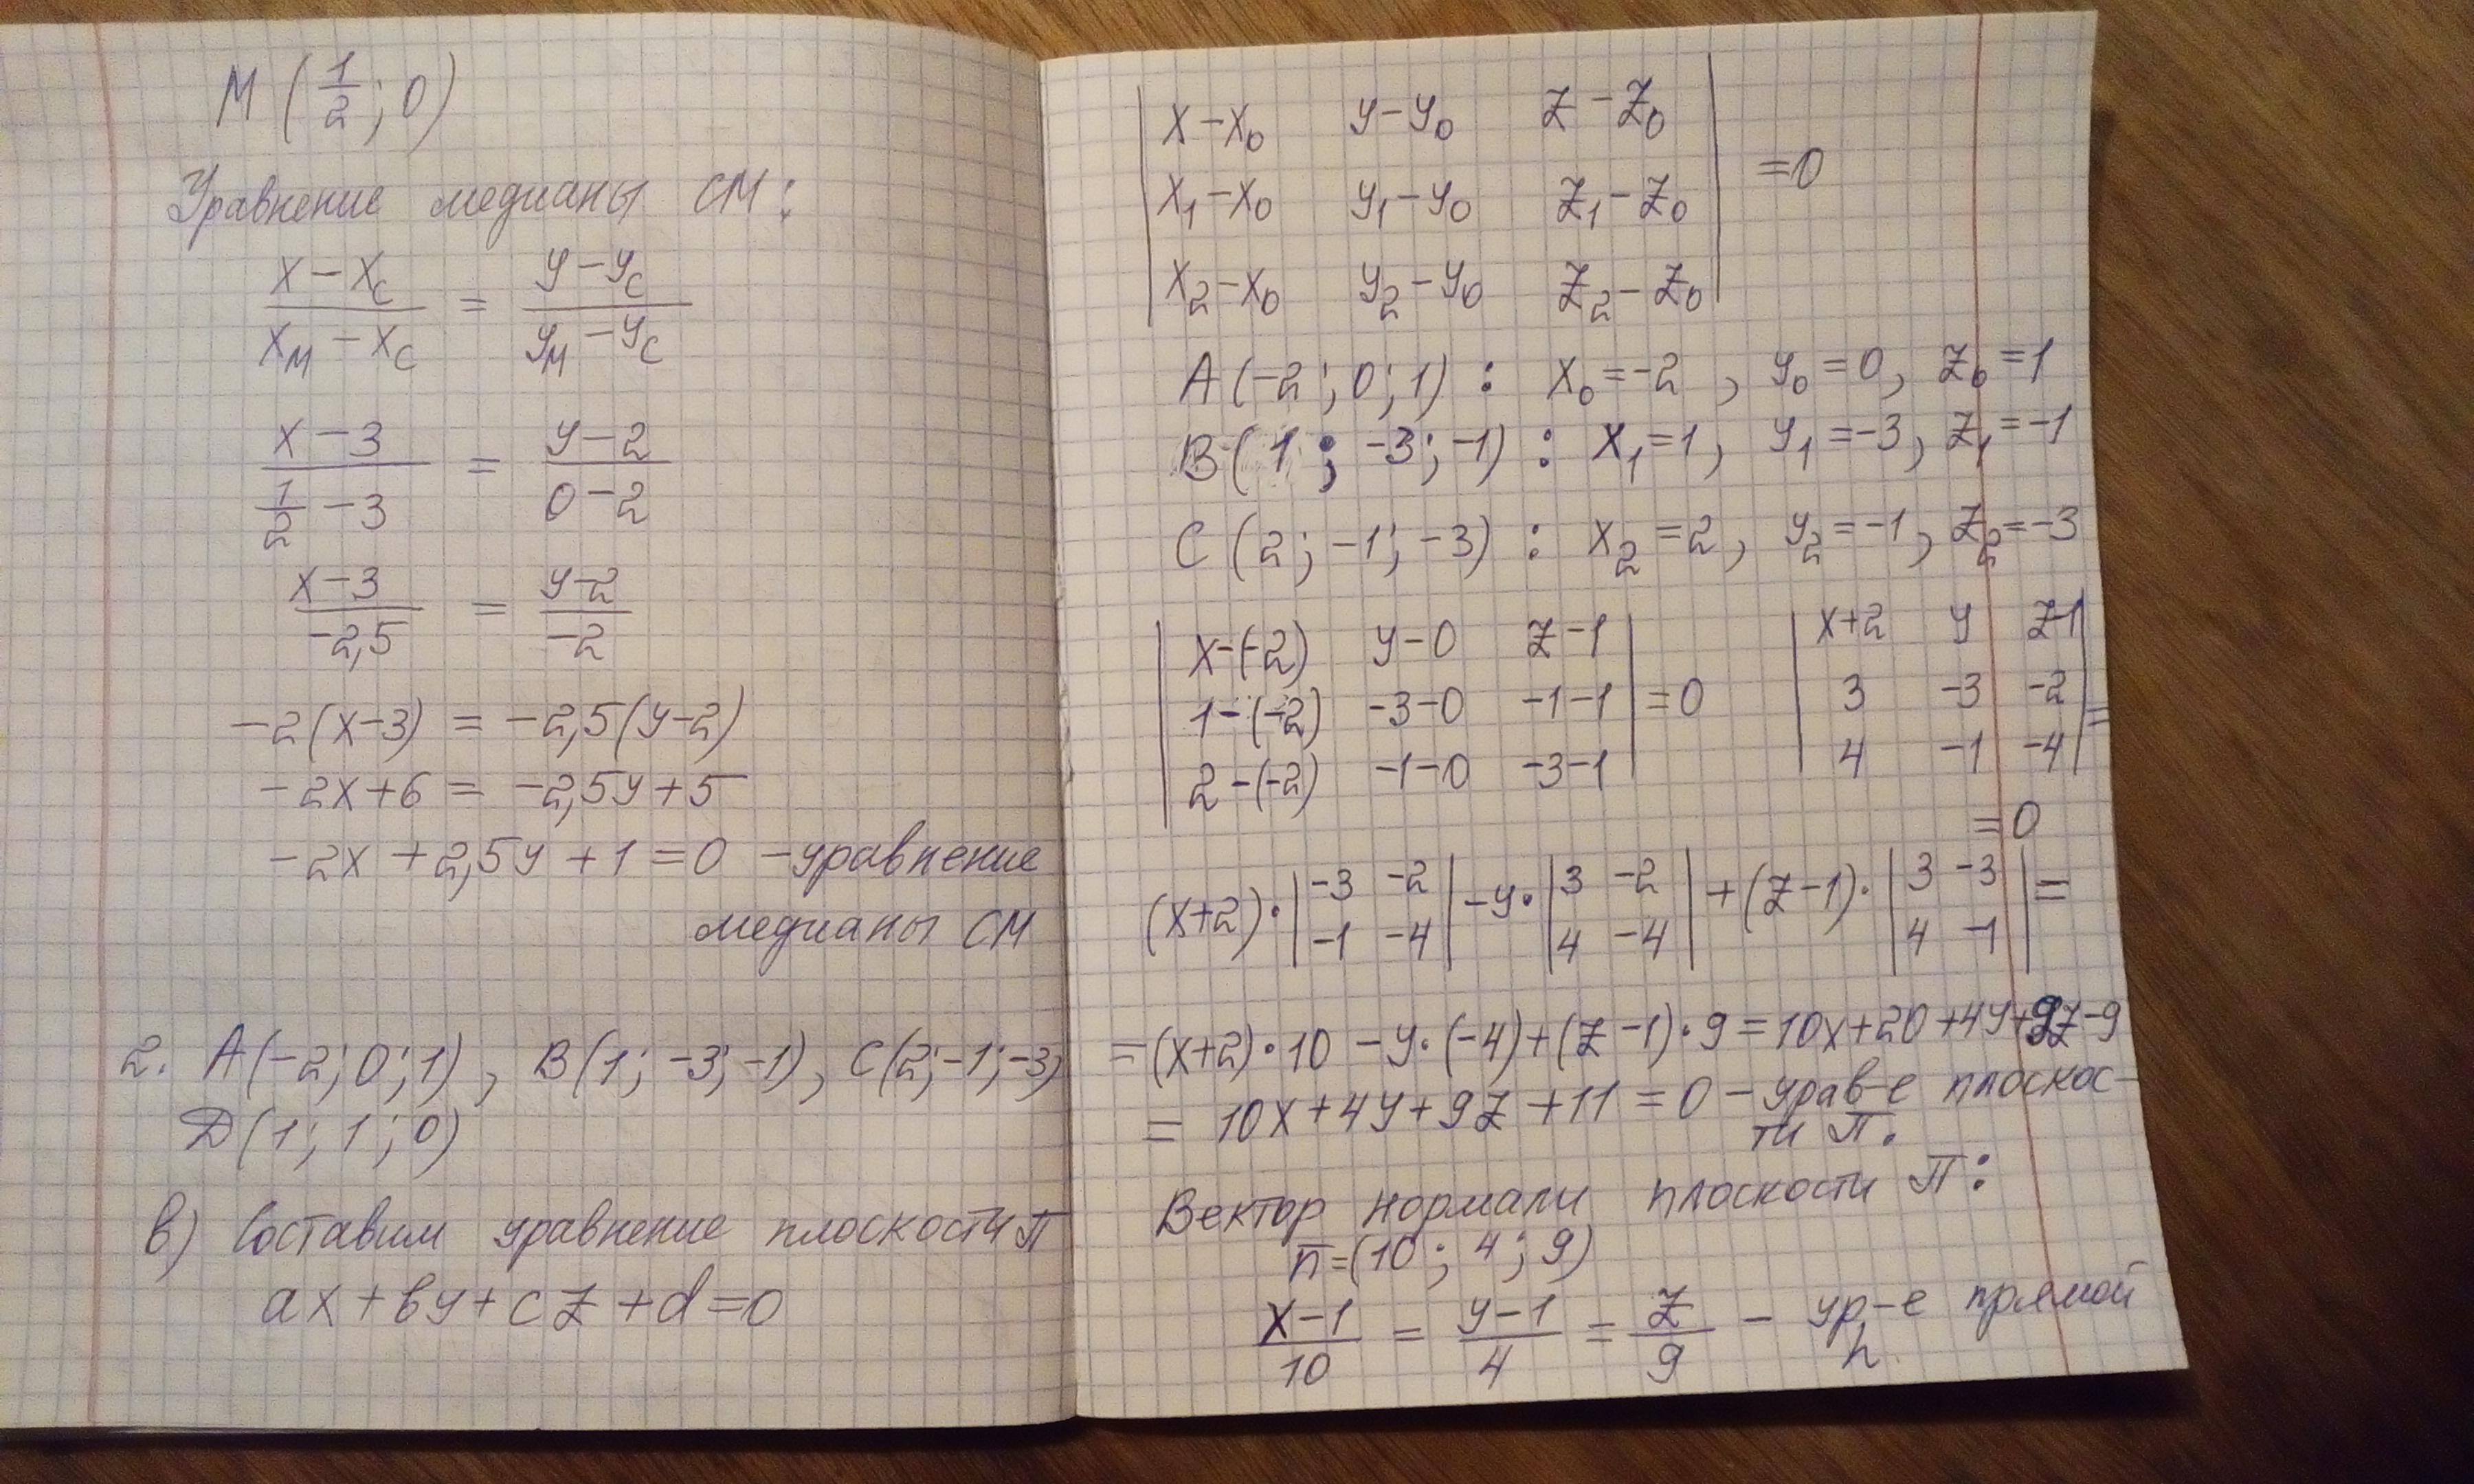 M (1/2; 0)
Уравнение медианы CM:
(x - x_c)/(x_M - x_c) = (y - y_c)/(y_M - y_c)
(x - 3)/(1/2 - 3) = (y - 2)/(0 - 2)
(x - 3)/(-2,5) = (y - 2)/(-2)
-2(x-3) = -2,5(y-2)
-2x+6 = -2,5y+5
-2x + 2,5y + 1 = 0 - уравнение
медианы CM
2. A(-2; 0; 1), B(1; -3; -1), C(2; -1; -3)
D(1; 1; 0)
в) Составим уравнение плоскости П
ax + by + cz + d = 0
| x - x_0 y - y_0 z - z_0 |
| x_1 - x_0 y_1 - y_0 z_1 - z_0 | = 0
| x_2 - x_0 y_2 - y_0 z_2 - z_0 |
A(-2; 0; 1): x_0 = -2, y_0 = 0, z_0 = 1
B(1; -3; -1): x_1 = 1, y_1 = -3, z_1 = -1
C(2; -1; -3): x_2 = 2, y_2 = -1, z_2 = -3
| x-(-2) y-0 z-1 | | x+2 y z-1 |
| 1-(-2) -3-0 -1-1 | = 0 | 3 -3 -2 | =
| 2-(-2) -1-0 -3-1 | | 4 -1 -4 |
= 0
(x+2) · | -3 -2 | - y · | 3 -2 | + (z-1) · | 3 -3 | =
| -1 -4 | | 4 -4 | | 4 -1 |
= (x+2) · 10 - y · (-4) + (z-1) · 9 = 10x+20+4y+9z-9
= 10x+4y+9z+11 = 0 - урав-е плоскос-
ти П.
Вектор нормали плоскости П:
n̄=(10; 4; 9)
(x-1)/10 = (y-1)/4 = z/9 - ур-е прямой
h